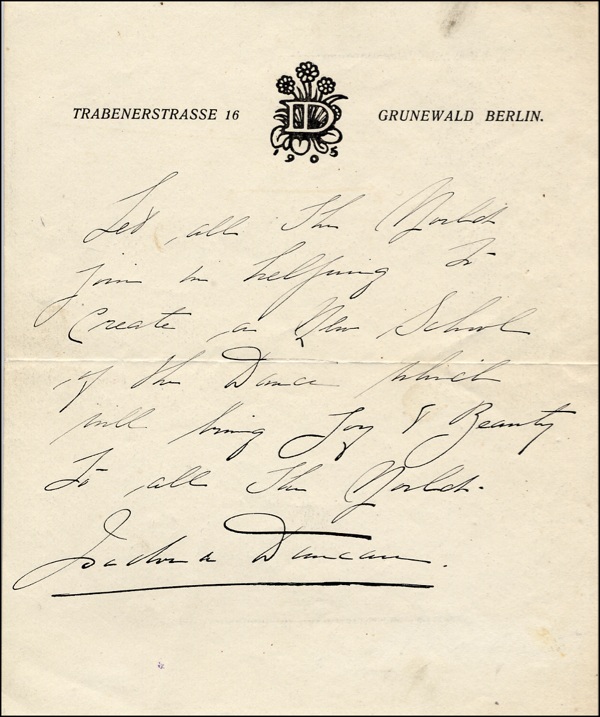 TRABENERSTRASSE 16 ID GRUNEWALD BERLIN.
1905
Let all the World
join in helping to
Create a New School
of the Dance which
will bring Joy & Beauty
To all the World.
Isadora Duncan.